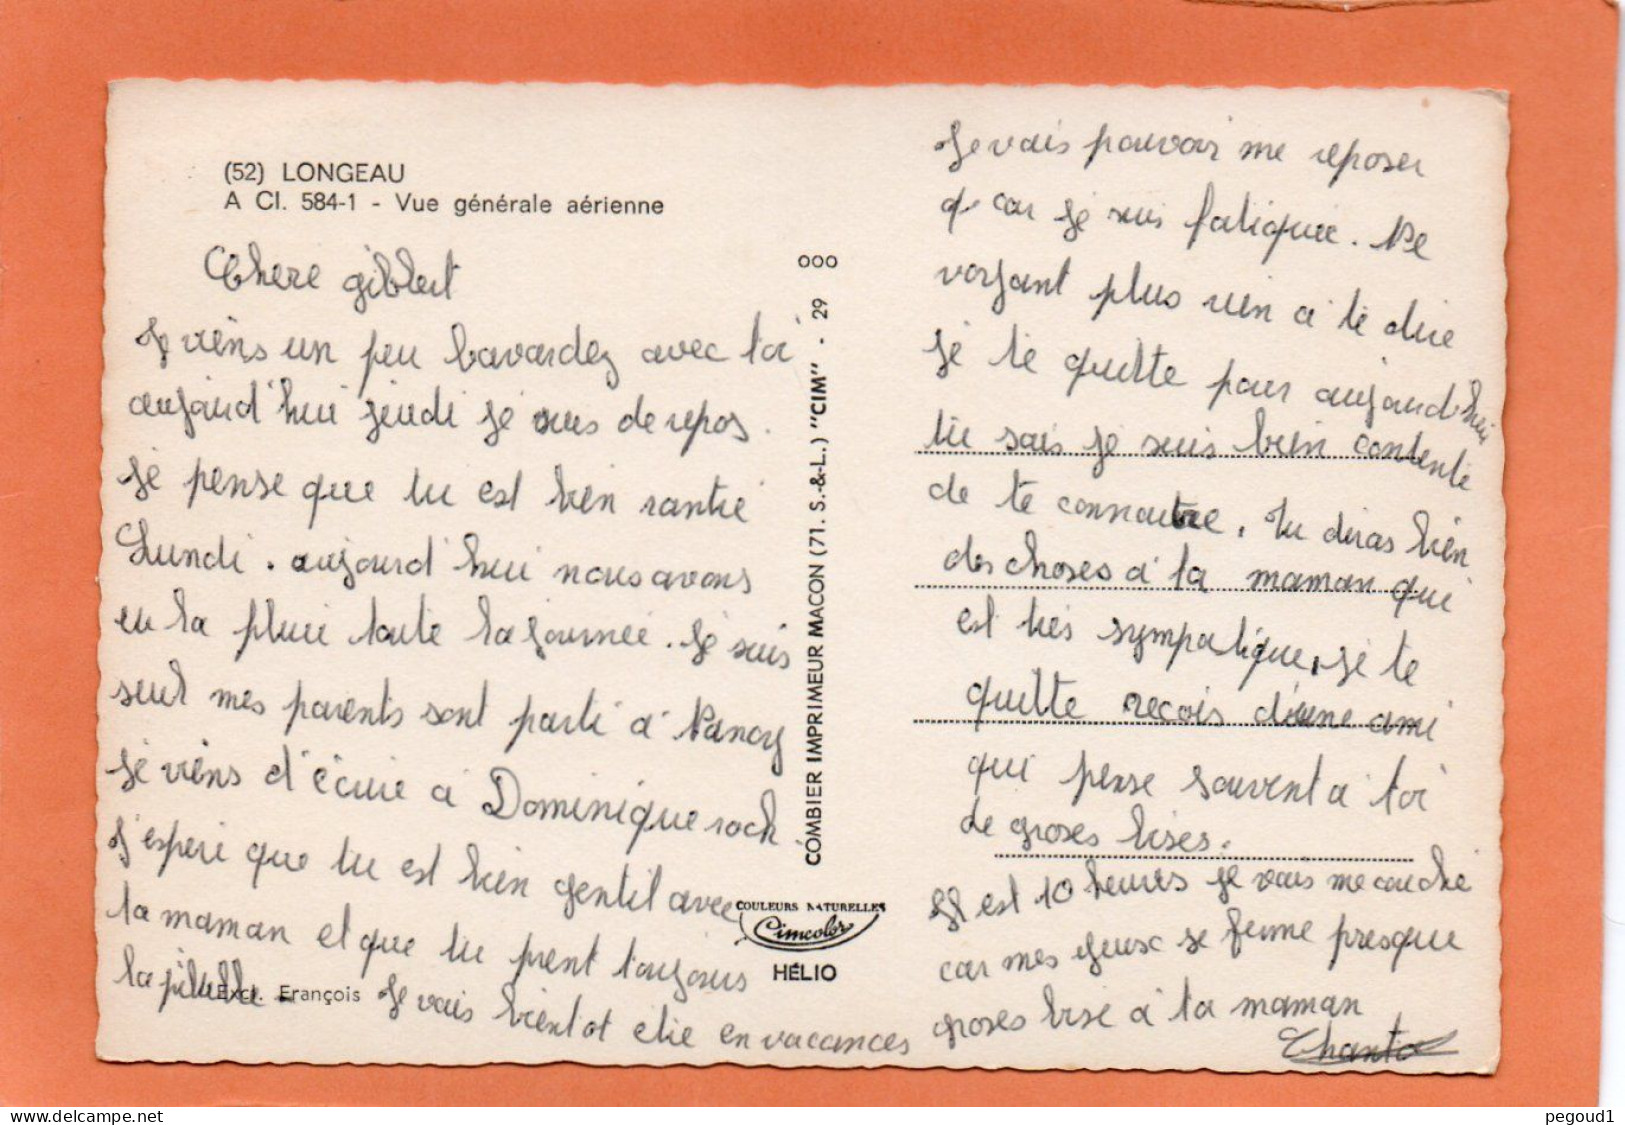 (52) LONGEAU
A CI. 584-1 - Vue générale aérienne
Chere gilbert
Je viens un peu bavardez avec toi
aujourd'hui jeudi je suis de repos.
je pense que tu est bien rantré
Lundi. aujourd'hui nous avons
eu la pluie toute la journee. Je suis
seul mes parents sont parti à Nancy
je viens d'écrire à Dominique roch.
J'espere que tu est bien gentil avec
ta maman et que tu prent toujours
la pillulle. Je vais bientot etre en vacances
Excl. François
COMBIER IMPRIMEUR MACON (71. S.-&-L.) "CIM" . 29 000
COULEURS NATURELLES
Cimcolor
HÉLIO
Je vais pouvoir me reposer
car je suis fatiquée. Ne
voyant plus rien a te dire
je te quitte pour aujourd'hui
tu sais je suis bien contente
de te connaitre. Tu diras bien
des choses a ta maman qui
est très sympatique, je te
quitte recois d'une ami
qui pense souvent a toi
de groses bises.
Il est 10 heures je vais me couché
car mes yeux se ferme presque
groses bise à ta maman
Chantal
pegoud1
www.delcampe.net